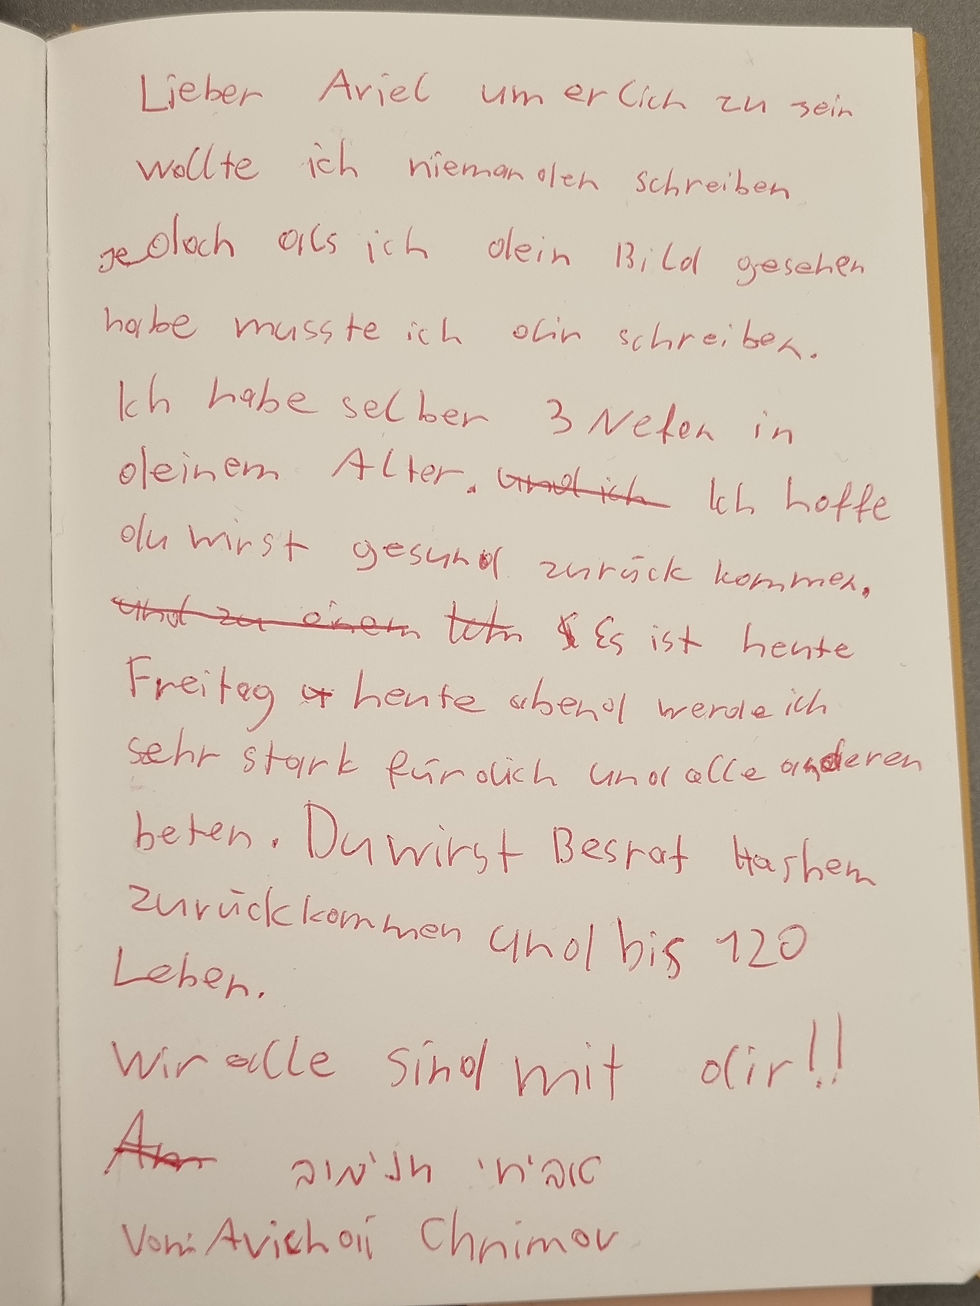 Lieber Ariel um erlich zu sein
wollte ich niemanden schreiben
jedoch als ich dein Bild gesehen
habe musste ich dir schreiben.
Ich habe selber 3 Nefen in
deinem Alter. und ich Ich hoffe
du wirst gesund zurück kommen.
und zu einem Es ist heute
Freitag heute abend werde ich
sehr stark für dich und alle anderen
beten. Du wirst Besrat Hashem
zurückkommen und bis 120
Leben.
Wir alle sind mit dir!!
Von: Avichaii Chnimov